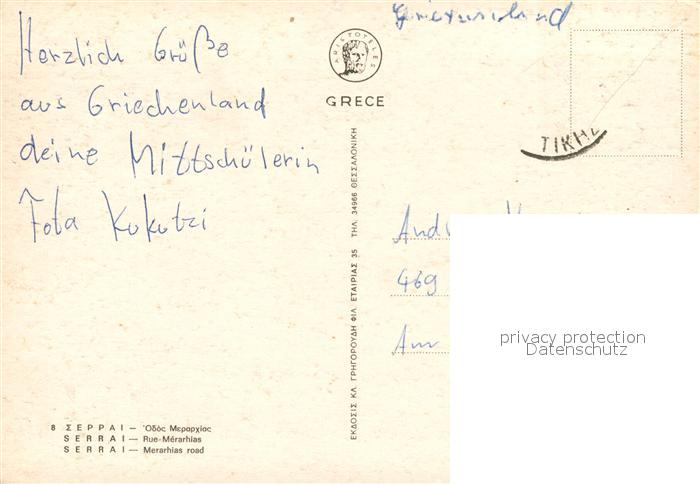 Herzlich Grüße
aus Griechenland
deine Mittschülerin
Fota Kukutzi
8 ΣΕΡΡΑΙ — Ὁδὸς Μεραρχίας
SERRAI — Rue-Mérarhias
SERRAI — Merarhias road
ARISTOTELES
GRECE
ΕΚΔΟΣΙΣ ΚΛ. ΓΡΗΓΟΡΟΥΔΗ ΦΙΛ. ΕΤΑΙΡΙΑΣ 35 ΤΗΛ. 34966 ΘΕΣΣΑΛΟΝΙΚΗ
Griechenland
ΤΙΚΗΣ
469
privacy protection
Datenschutz